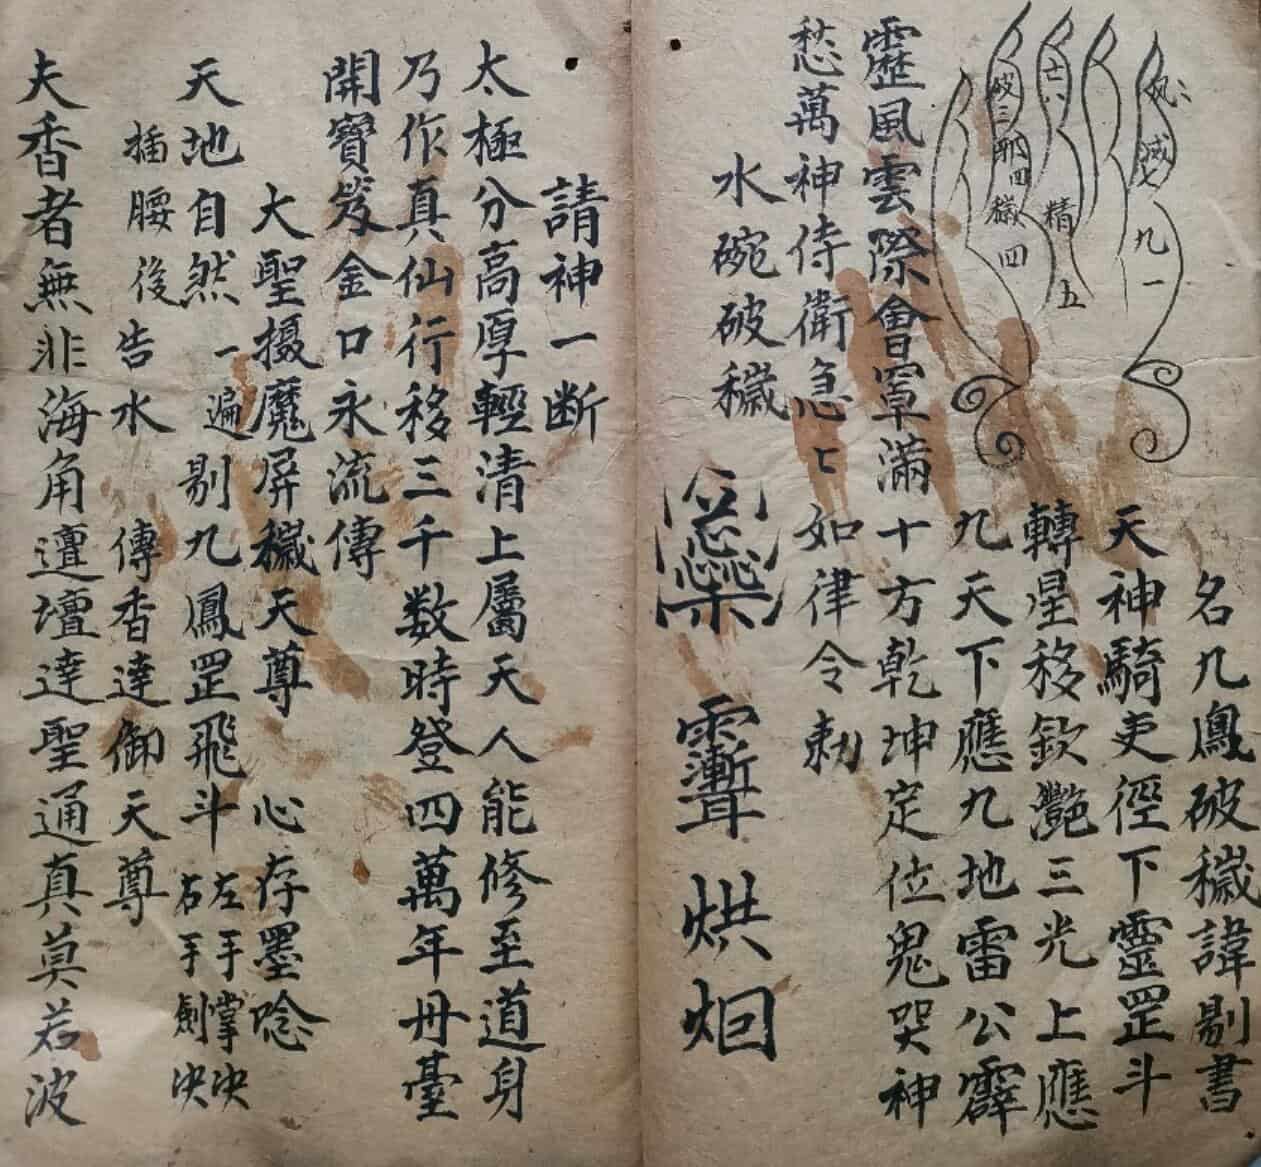 名九鳳破穢諱剔書
天神騎吏徑下靈罡斗
轉星移欽艷三光上應
九天下應九地雷公霹
靂風雲際會罩滿十方乾坤定位鬼哭神
愁萬神侍衛急〻如律令勅
水碗破穢
烘烟
請神一断
太極分高厚輕清上屬天人能修至道身
乃作真仙行移三千数時登四萬年丹臺
開寶笈金口永流傳
大聖摄魔屏穢天尊 心存墨唸
天地自然一遍剔九鳳罡飛斗 左手掌决
右手劍决
插腰後告水 傳香達御天尊
夫香者無非海角邅壇達聖通真莫若波